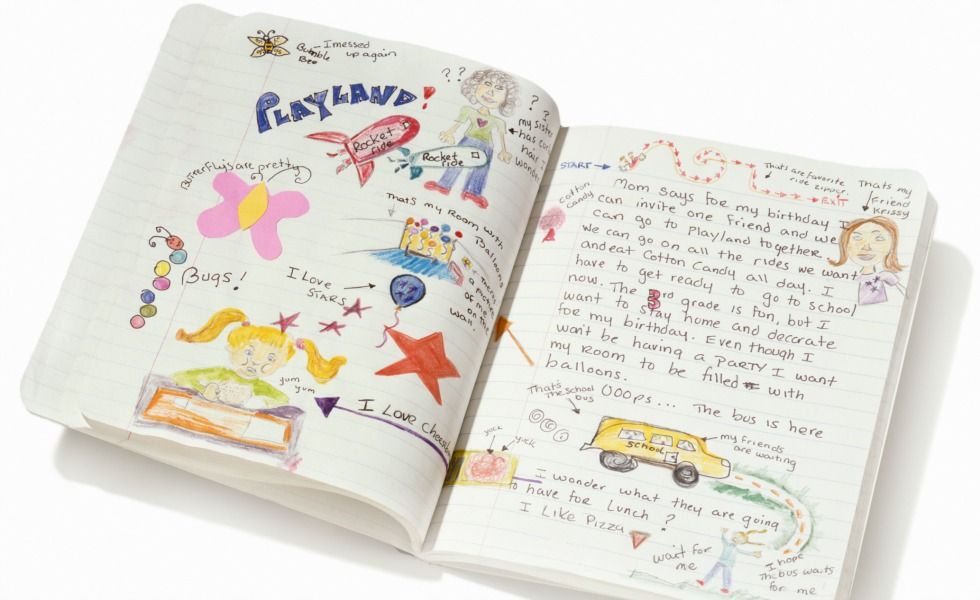 Bumble
Bee
- I messed
up again
PLAYLAND!
? ?
?
?
I
my sister
has curly
hair
wonder
Rocket
ride
Rocket
ride
Butterflys are pretty
That's my Room with
Balloons
theres
a picture
of me
on the
wall
Bugs!
I Love
STARS
yum
yum
I Love Cheese
START
That's are favorite
ride zipper.
EXIT
Thats my
friend
Krissy
Cotton
candy
Mom says for my birthday I
can invite one friend and we
can go to Playland together.
we can go on all the rides we want
and eat Cotton Candy all day. I
have to get ready to go to school
now. The 3rd grade is fun, but I
want to stay home and decorate
for my birthday. Even though I
won't be having a PARTY I want
my room to be filled with
balloons.
OOOps... The bus is here
That's
the school
bus
school
my friends
are waiting
yuck
yuck
I wonder what they are going
to have for Lunch ?
I Like Pizza
wait for
me
I hope
the bus waits
for me